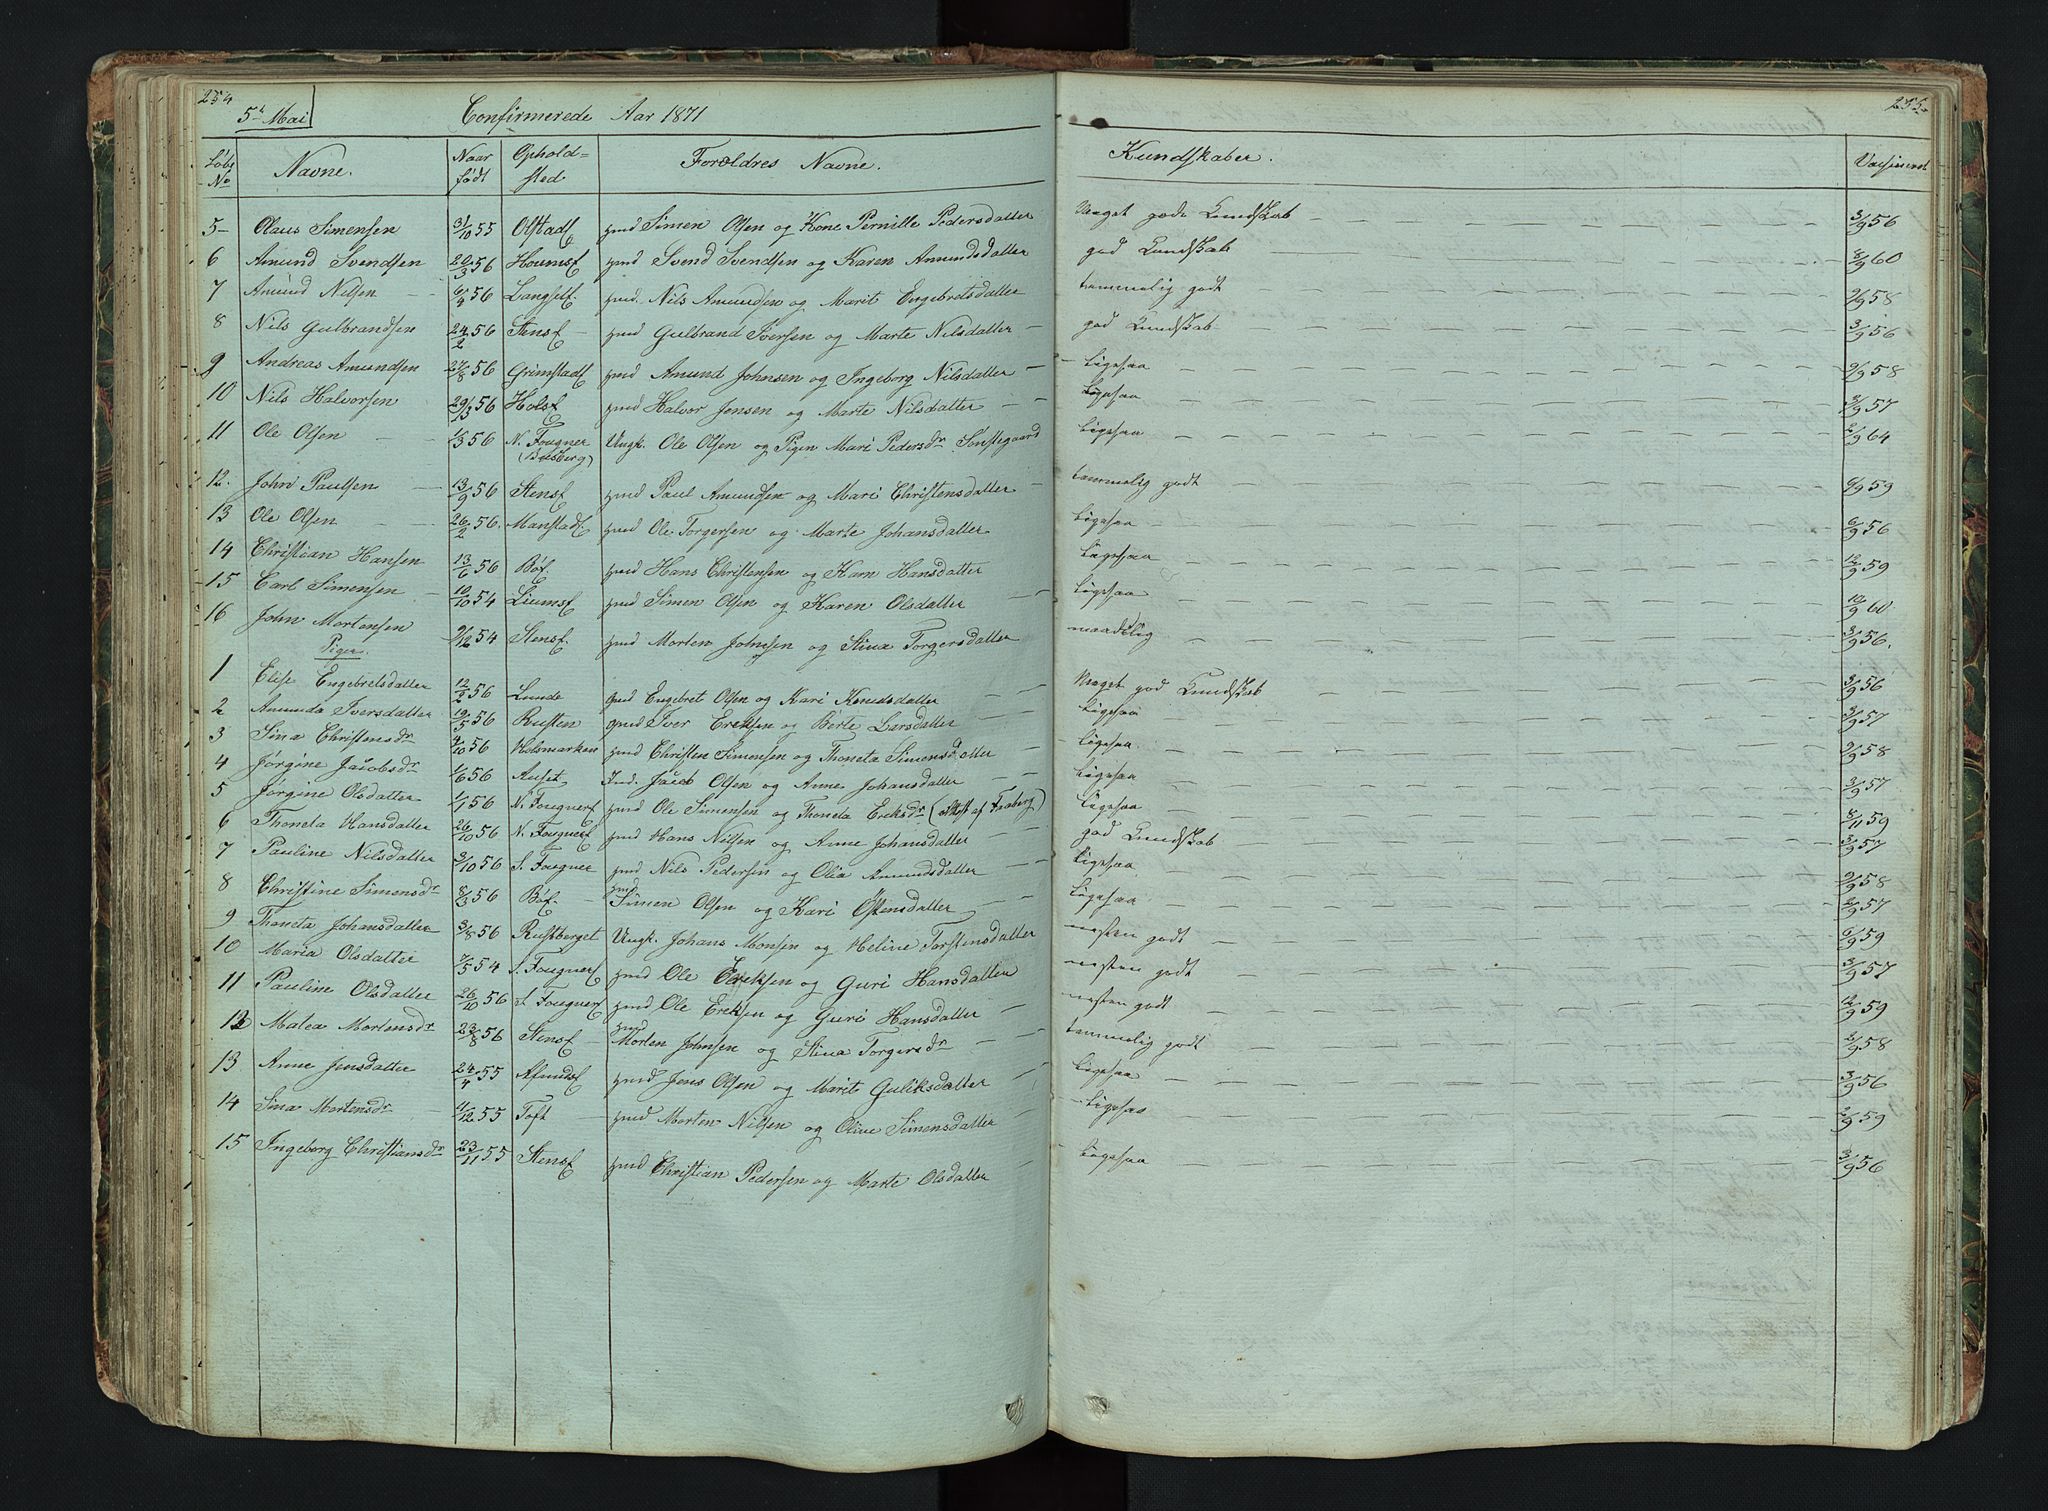 254
5t Mai
Confirmerede Aar 1871
Løbe No Navne. Naar født Ophold-sted Forældres Navne.
5 Olaus Simensen 31/10 55 Olstad Simen Olsen og Kone Pernille Pedersdatter
6 Amund Svendsen 20/3 56 Houms Svend Svendsen og Karen Amundsdatter
7 Amund Nilsen 6/4 56 Langset Nils Amundsen og Marit Engebretsdatter
8 Nils Gulbrandsen 24/2 56 Stens Gulbrand Iversen og Marte Nilsdatter
9 Andreas Amundsen 27/8 56 Grimstad Amund Johnsen og Ingeborg Nilsdatter
10 Nils Halvorsen 29/3 56 Hols Halvor Jensen og Marte Nilsdatter
11 Ole Olsen 1/3 56 N. Fougner Ungk. Ole Olsen og Pigen Mari Pedersdr
12. John Paulsen 13/9 56 Stens Paul Amundsen og Mari Christensdatter
13 Ole Olsen 26/2 56. Manstad Ole Torgersen og Marte Johansdatter
14 Christian Hansen 13/6 56 Bø Hans Christensen og Karn Hansdatter
15 Carl Simensen 10/10 54 Liums Simen Olsen og Karen Olsdatter
16 John Mortensen 9/12 54 Stens Morten Johnsen og Stina Torgersdatter
Piger.
1 Elise Engebretsdatter 12/2 56 Lunde Engebret Olsen og Kari Knudsdatter
2 Amunda Iversdatter 19/5 56 Rusten Iver Ereksen og Berte Larsdatter
3 Sina Christensdr 4/10 56 Holsmarken Christen Simensen og Thoneta Simensdatter
4 Jørgine Jacobsdr 1/6 56 Jacob Olsen og Anne Johansdatter
5 Jørgine Olsdatter 1/1 56 N. Fougner Ole Simensen og Thoneta Ereksdr (attest af Faaberg)
6 Thoneta Hansdatter 26/10 56 N. Fougner Hans Nilsen og Anne Johansdatter
7 Pauline Nilsdatter 3/10 56 S. Fougner Nils Pedersen og Olia Amundsdatter
8 Christine Simensdr 8/3 56 Bø Simen Olsen og Kari Østensdatter
9 Thoneta Johansdatter 3/8 56 Rustberget Ungk. Johans Monsen og Heline Torstensdatter
10 Maria Olsdatter 7/5 54 S. Fougner Ole Ereksen og Guri Hansdatter
11 Pauline Olsdatter 26/10 56 S. Fougner Ole Ereksen og Guri Hansdatter
12 Malea Mortensdr 23/8 56 Stens Morten Johnsen og Stina Torgersdr
13 Anne Jensdatter 24/4 55 Afunds Jens Olsen og Marit Guliksdatter
14 Sina Mortensdr 4/12 55 Toft Morten Nilsen og Olive Simensdatter
15 Ingeborg Christiansdr 23/11 55 Stens Christian Pedersen og Marte Olsdatter
255
Kundskaber. Vaccineret
Meget gode Kundskab 3/9 56
god Kundskab 8/9 60
temmelig godt 2/9 58
god Kundskab 3/9 56
Ligesaa 2/9 58
Ligesaa 3/9 57
Ligesaa 2/9 64
temmelig godt 6/9 59
Ligesaa 6/9 56
Ligesaa 12/9 59
Ligesaa 12/9 60
maadelig 3/9 56.
Meget god Kundskab 3/9 56
Ligesaa 3/9 57
Ligesaa 2/9 58
Ligesaa 3/9 57
Ligesaa 8/11 59
god Kundskab 3/9 57
Ligesaa 2/9 58
Ligesaa 2/9 57
næsten godt 6/9 59
næsten godt 3/9 57
næsten godt 12/9 59
temmelig godt 2/9 58
Ligesaa 3/9 56
Ligesaa 2/9 59
Ligesaa 3/9 56